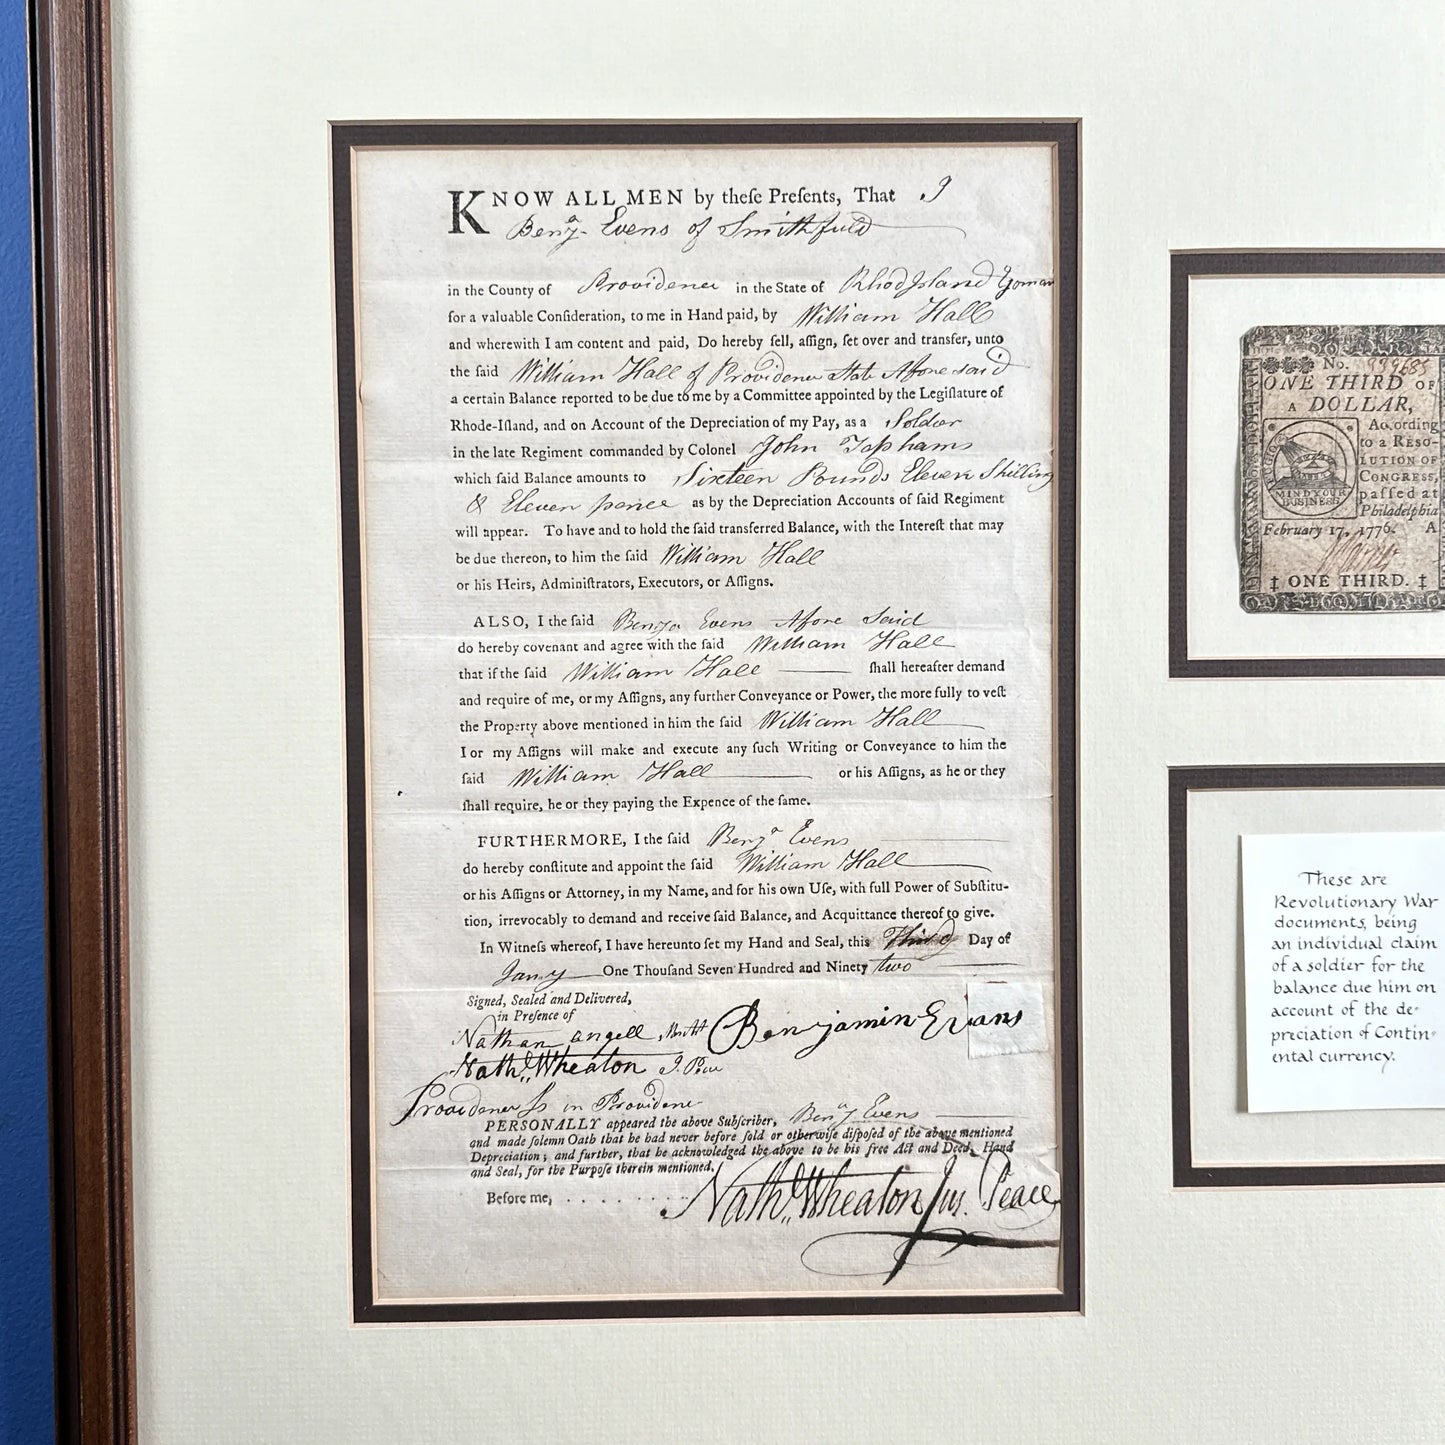 KNOW ALL MEN by theſe Preſents, That I
Benjᵃ Evens of Smithfield
in the County of Providence in the State of Rhod Island Yoman
for a valuable Conſideration, to me in Hand paid, by William Hall
and wherewith I am content and paid, Do hereby ſell, aſſign, ſet over and transfer, unto
the ſaid William Hall of Providence State Afore said
a certain Balance reported to be due to me by a Committee appointed by the Legiſlature of
Rhode-Iſland, and on Account of the Depreciation of my Pay, as a Soldier
in the late Regiment commanded by Colonel John Taphams
which ſaid Balance amounts to Sixteen Pounds Eleven Shilling
& Eleven pence as by the Depreciation Accounts of ſaid Regiment
will appear. To have and to hold the ſaid transferred Balance, with the Intereſt that may
be due thereon, to him the ſaid William Hall
or his Heirs, Adminiſtrators, Executors, or Aſſigns.
ALSO, I the ſaid Benja Evens Afore Said
do hereby covenant and agree with the ſaid William Hall
that if the ſaid William Hall ſhall hereafter demand
and require of me, or my Aſſigns, any further Conveyance or Power, the more fully to veſt
the Property above mentioned in him the ſaid William Hall
I or my Aſſigns will make and execute any ſuch Writing or Conveyance to him the
ſaid William Hall or his Aſſigns, as he or they
ſhall require, he or they paying the Expence of the ſame.
FURTHERMORE, I the ſaid Benjᵃ Evens
do hereby conſtitute and appoint the ſaid William Hall
or his Aſſigns or Attorney, in my Name, and for his own Uſe, with full Power of Subſtitu-
tion, irrevocably to demand and receive ſaid Balance, and Acquittance thereof to give.
In Witneſs whereof, I have hereunto ſet my Hand and Seal, this Third Day of
Jany One Thouſand Seven Hundred and Ninety two
Signed, Sealed and Delivered,
in Preſence of
Nathan angell Benjamin Evans
Nathˡ Wheaton J. Peace
Providence Ss in Providence
PERSONALLY appeared the above Subſcriber, Benjᵃ Evens
and made ſolemn Oath that he had never before ſold or otherwiſe diſpoſed of the above mentioned
Depreciation; and further, that he acknowledged the above to be his free Act and Deed, Hand
and Seal, for the Purpoſe therein mentioned.
Before me, . . . . . . . . Nathˡ Wheaton Jus. Peace
No. 999685
ONE THIRD OF
A DOLLAR,
According
to a RESO-
LUTION OF
CONGRESS,
paſſed at
Philadelphia
February 17, 1776.
FUGIO
MIND YOUR
BUSINESS
‡ ONE THIRD. ‡
These are
Revolutionary War
documents, being
an individual claim
of a soldier for the
balance due him on
account of the de-
preciation of Contin-
ental currency.